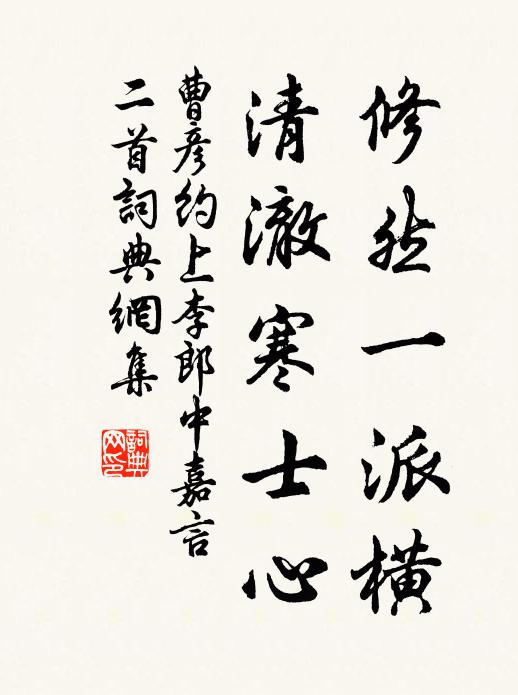 修然一派橫
清澈寒士心
曹彦約上李郎中嘉言
二首詞典網集
詞典網印